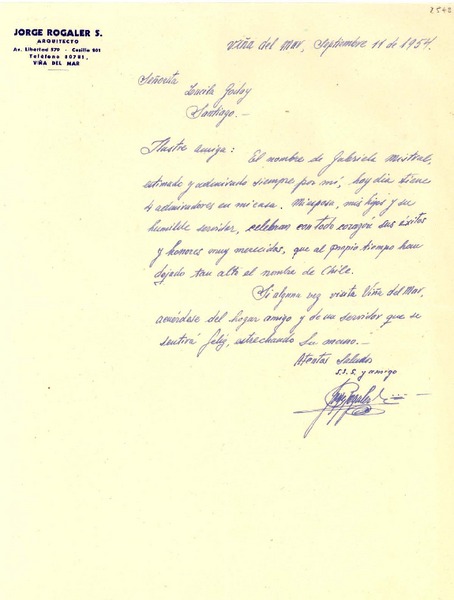 2542
JORGE ROGALER S.
ARQUITECTO
Av. Libertad 579 - Casilla 201
Teléfono 80781,
VIÑA DEL MAR
Viña del Mar, Septiembre 11 de 1954.
Señorita
Lucila Godoy
Santiago.—
Ilustre amiga: El nombre de Gabriela Mistral,
estimado y admirado siempre por mí, hoy día tiene
4 admiradores en mi casa. Mi esposa, mis hijos y su
humilde servidor, celebran con todo corazón sus éxitos
y honores muy merecidos, que al propio tiempo han
dejado tan alto el nombre de Chile.
Si alguna vez visita Viña del Mar,
acuérdese del hogar amigo y de un servidor que se
sentirá feliz, estrechando su mano.—
Atentos Saludos
S.S.S. y amigo